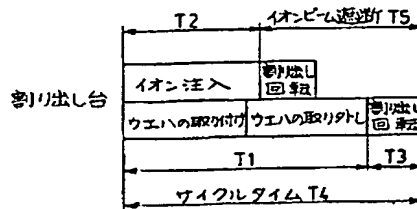 T2
イオンビーム遮断 T5
割り出し台
イオン注入
割出し
回転
ウエハの取り付け
ウエハの取り外し
割出し
回転
T1
T3
サイクルタイム T4